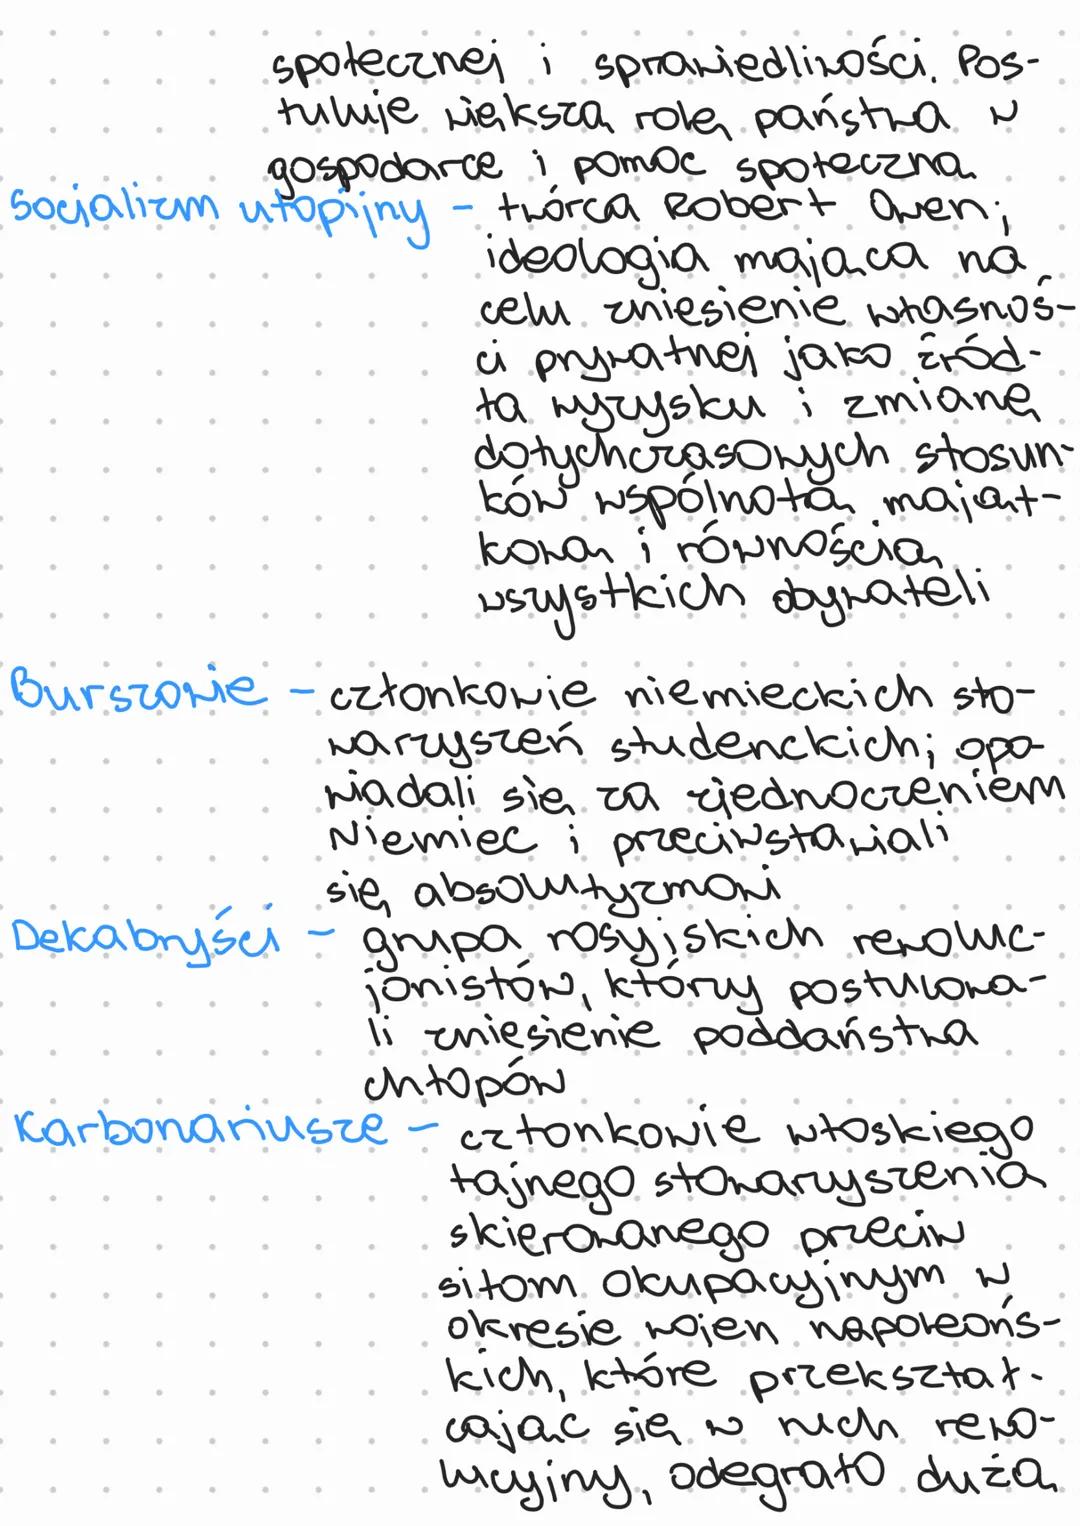 społecznej i sprawiedliwości. Pos-
tuluje większą rolę państwa w
gospodarce i pomoc społeczną
Socjalizm utopijny - twórca Robert Owen;
ideologia mająca na
celu zniesienie własnoś-
ci prywatnej jako źród-
ła wyzysku i zmianę
dotychczasowych stosun-
ków wspólnotą mająt-
kową i równością
wszystkich obywateli
Burszowie - członkowie niemieckich sto-
warzyszeń studenckich; opo-
wiadali się za zjednoczeniem
Niemiec i przeciwstawiali
się absolutyzmowi
Dekabryści - grupa rosyjskich rewoluc-
jonistów, który postulowa-
li zniesienie poddaństwa
chłopów
Karbonariusze - członkowie włoskiego
tajnego stowarzyszenia
skierowanego przeciw
siłom okupacyjnym w
okresie wojen napoleońs-
kich, które przekształ-
cając się w ruch rewo-
lucyjny, odegrało dużą